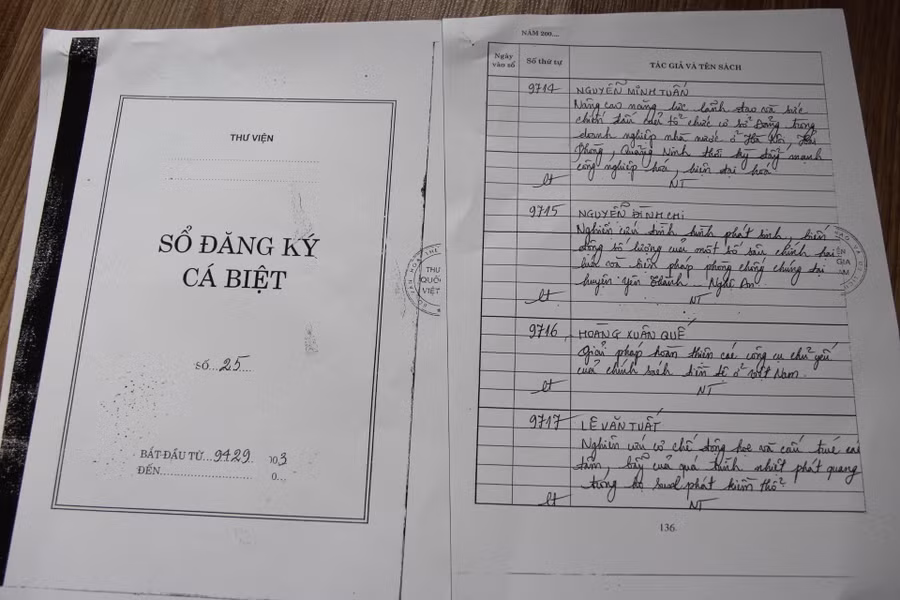 THƯ VIỆN
SỔ ĐĂNG KÝ
CÁ BIỆT
SỐ...25....
BẮT ĐẦU TỪ...9429.... 03
ĐẾN.................... 0...
THƯ
QUỐC
VIỆT
NĂM 200....
Ngày vào sổ
Số thứ tự
TÁC GIẢ VÀ TÊN SÁCH
9714 NGUYỄN MINH TUẤN
Nâng cao năng lực lãnh đạo và sức
chiến đấu của tổ chức cơ sở Đảng trong
doanh nghiệp nhà nước ở Hà Nội, Hải
Phòng, Quảng Ninh thời kỳ đẩy mạnh
công nghiệp hóa, hiện đại hóa
lt NT
9715 NGUYỄN ĐÌNH CHI
Nghiên cứu tình hình phát sinh, biến
động số lượng của một số sâu chính hại
lúa và biện pháp phòng chống chúng tại
huyện Yên Thành - Nghệ An
lt NT
9716 HOÀNG XUÂN QUẾ
Giải pháp hoàn thiện các công cụ chủ yếu
của chính sách tiền tệ ở Việt Nam.
lt NT
9717 LÊ VĂN TUẤT
Nghiên cứu cơ chế động học và cấu trúc các
tâm, bẫy của quá trình nhiệt phát quang
trong họ sunphát kiềm thổ
lt NT
136